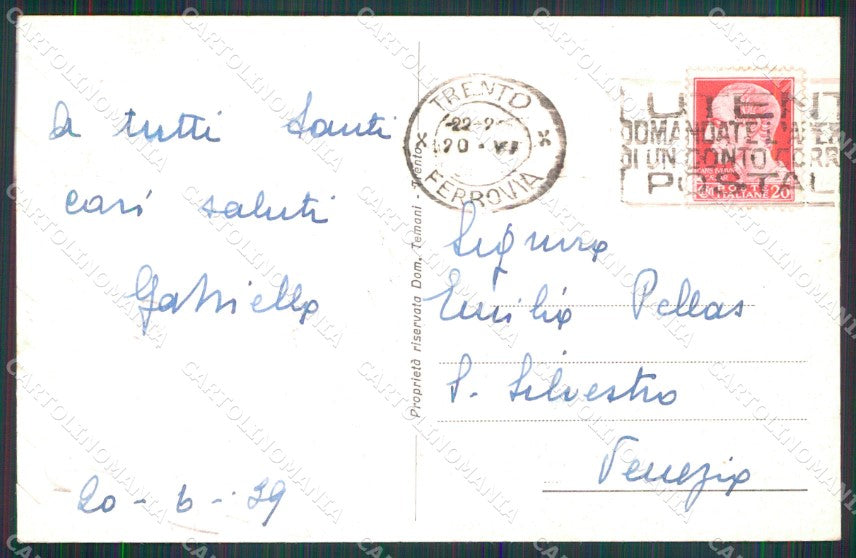 A tutti tanti
cari saluti
Gabriella
20-6-39
Proprietà riservata Dom. Temani - Trento
TRENTO
22-2
20 · VI
FERROVIA
UTENT
DOMANDATE L'APER
DI UN CONTO CORR
POSTAL
ITALIANE 20
Signora
Emilia Pellas
S. Silvestro
Venezia
CARTOLINOMANIA